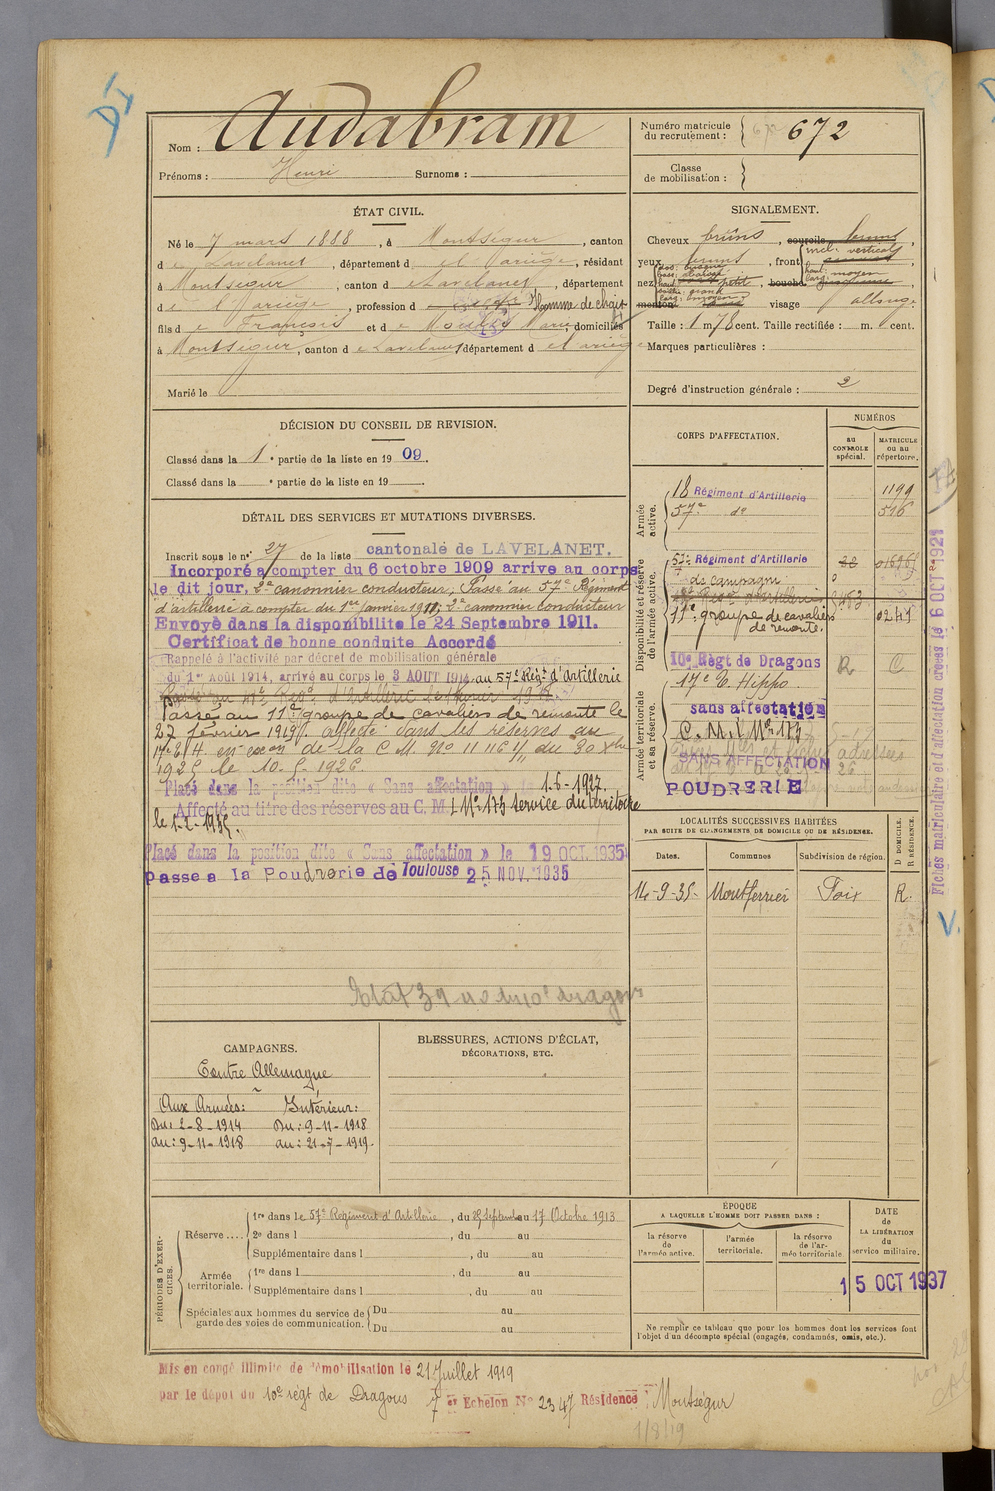 Nom : Audabram
Prénoms : Henri Surnoms :
Numéro matricule du recrutement : 672
Classe de mobilisation :
ÉTAT CIVIL.
Né le 7 mars 1888, à Montségur, canton
d e Lavelanet, département d e l'Ariège, résidant
à Montségur, canton d e Lavelanet, département
d e l'Ariège, profession d
fils d e François et d e Marie domiciliés
à Montségur, canton d e Lavelanet département d e l'ariège
Marié le
SIGNALEMENT.
Cheveux bruns, sourcils bruns,
yeux, front incl. vertical
haut. moyen
nez, bouche,
menton visage allong.
Taille : 1 m 78 cent. Taille rectifiée : m. cent.
Marques particulières :
Degré d'instruction générale : 2
DÉCISION DU CONSEIL DE REVISION.
Classé dans la 1e partie de la liste en 1909.
Classé dans la e partie de la liste en 19
DÉTAIL DES SERVICES ET MUTATIONS DIVERSES.
Inscrit sous le n° 27 de la liste cantonale de LAVELANET.
Incorporé a compter du 6 octobre 1909 arrive au corps
le dit jour, 2e canonnier conducteur, Passé au 57e Régiment
d'artillerie à compter du 1er Janvier 1911, 2e canonnier conducteur
Envoyé dans la disponibilite le 24 Septembre 1911.
Certificat de bonne conduite Accordé
Rappelé à l'activité par décret de mobilisation générale
du 1er Août 1914, arrivé au corps le 3 AOUT 1914 au 57e Régt d'Artillerie
Passé au 11e groupe de cavaliers de remonte le
27 février 1919. affecté dans les réserves au
de la C M no 11116 du 20
1925 le 10-5-1926
Placé dans la position dite « Sans affectation » le 1-6-1927.
Affecté au titre des réserves au C. M. I No 173 service du territoire
le 1-2-1935.
Placé dans la position dite « Sans affectation » le 19 OCT. 1935
passe a la Poudrerie de Toulouse 25 NOV. 1935
CORPS D'AFFECTATION.
NUMÉROS
au CONTROLE spécial.
MATRICULE ou au répertoire.
Armée active.
18 Régiment d'Artillerie 1199
57e do 516
Disponibilité et réserve de l'armée active.
57e Régiment d'Artillerie
de campagne
11e groupe de cavaliers 0241
de remonte.
10e Régt de Dragons R C
Armée territoriale et sa réserve.
17e E. Hippo.
sans affectation
C. M. I No 173
SANS AFFECTATION
POUDRERIE
Fiches matriculaire et d'affectation créées le 6 OCT 1921
LOCALITÉS SUCCESSIVES HABITÉES
PAR SUITE DE CHANGEMENTS DE DOMICILE OU DE RÉSIDENCE.
Dates. Communes Subdivision de région. D DOMICILE. R RÉSIDENCE.
14-9-35- Montferrier Foix R.
V.
CAMPAGNES.
Contre Allemagne
Aux Armées: Intérieur:
Du: 2-8-1914 Du: 9-11-1918
au: 9-11-1918 au: 21-7-1919.
BLESSURES, ACTIONS D'ÉCLAT,
DÉCORATIONS, ETC.
PÉRIODES D'EXERCICES.
Réserve .... 1re dans le 57e Régiment d'Artillerie, du Septembre au 17 Octobre 1913
2e dans l , du au
Supplémentaire dans l , du au
Armée territoriale. 1re dans l , du au
Supplémentaire dans l , du au
Spéciales aux hommes du service de garde des voies de communication. Du au
Du au
ÉPOQUE
A LAQUELLE L'HOMME DOIT PASSER DANS :
la réserve de l'armée active.
l'armée territoriale.
la réserve de l'armée territoriale.
DATE de LA LIBÉRATION du service militaire.
15 OCT 1937
Ne remplir ce tableau que pour les hommes dont les services font
l'objet d'un décompte spécial (engagés, condamnés, omis, etc.).
Mis en congé illimité de démobilisation le 21 Juillet 1919
par le dépot du 10e régt de Dragons 7 Echelon No 2347 Résidence : Montségur
1/8/19